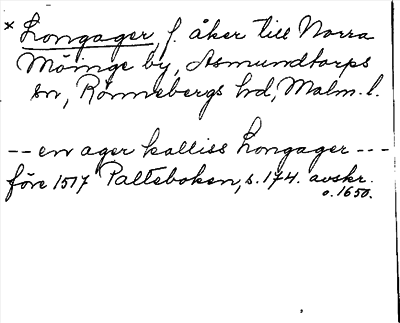 * Longager, f. åker till Norra
Möinge by, Asmundtorps
sn, Rönnebergs hd, Malm. l.
-- en ager kalliss Longager ---
före 1517 Palteboken, s. 174. avskr.
o. 1650.